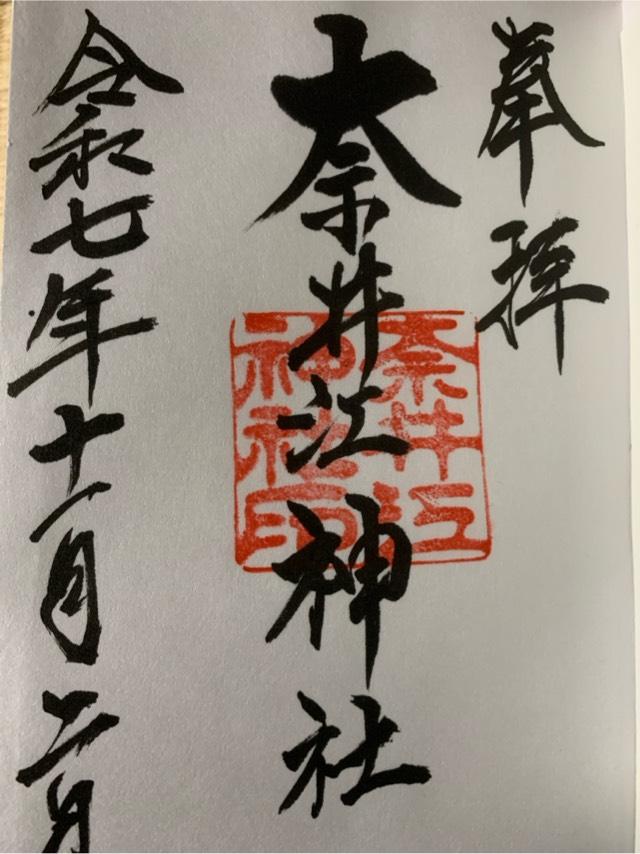 奉拝
奈井江神社
奈井江
神社印
令和七年十一月二日